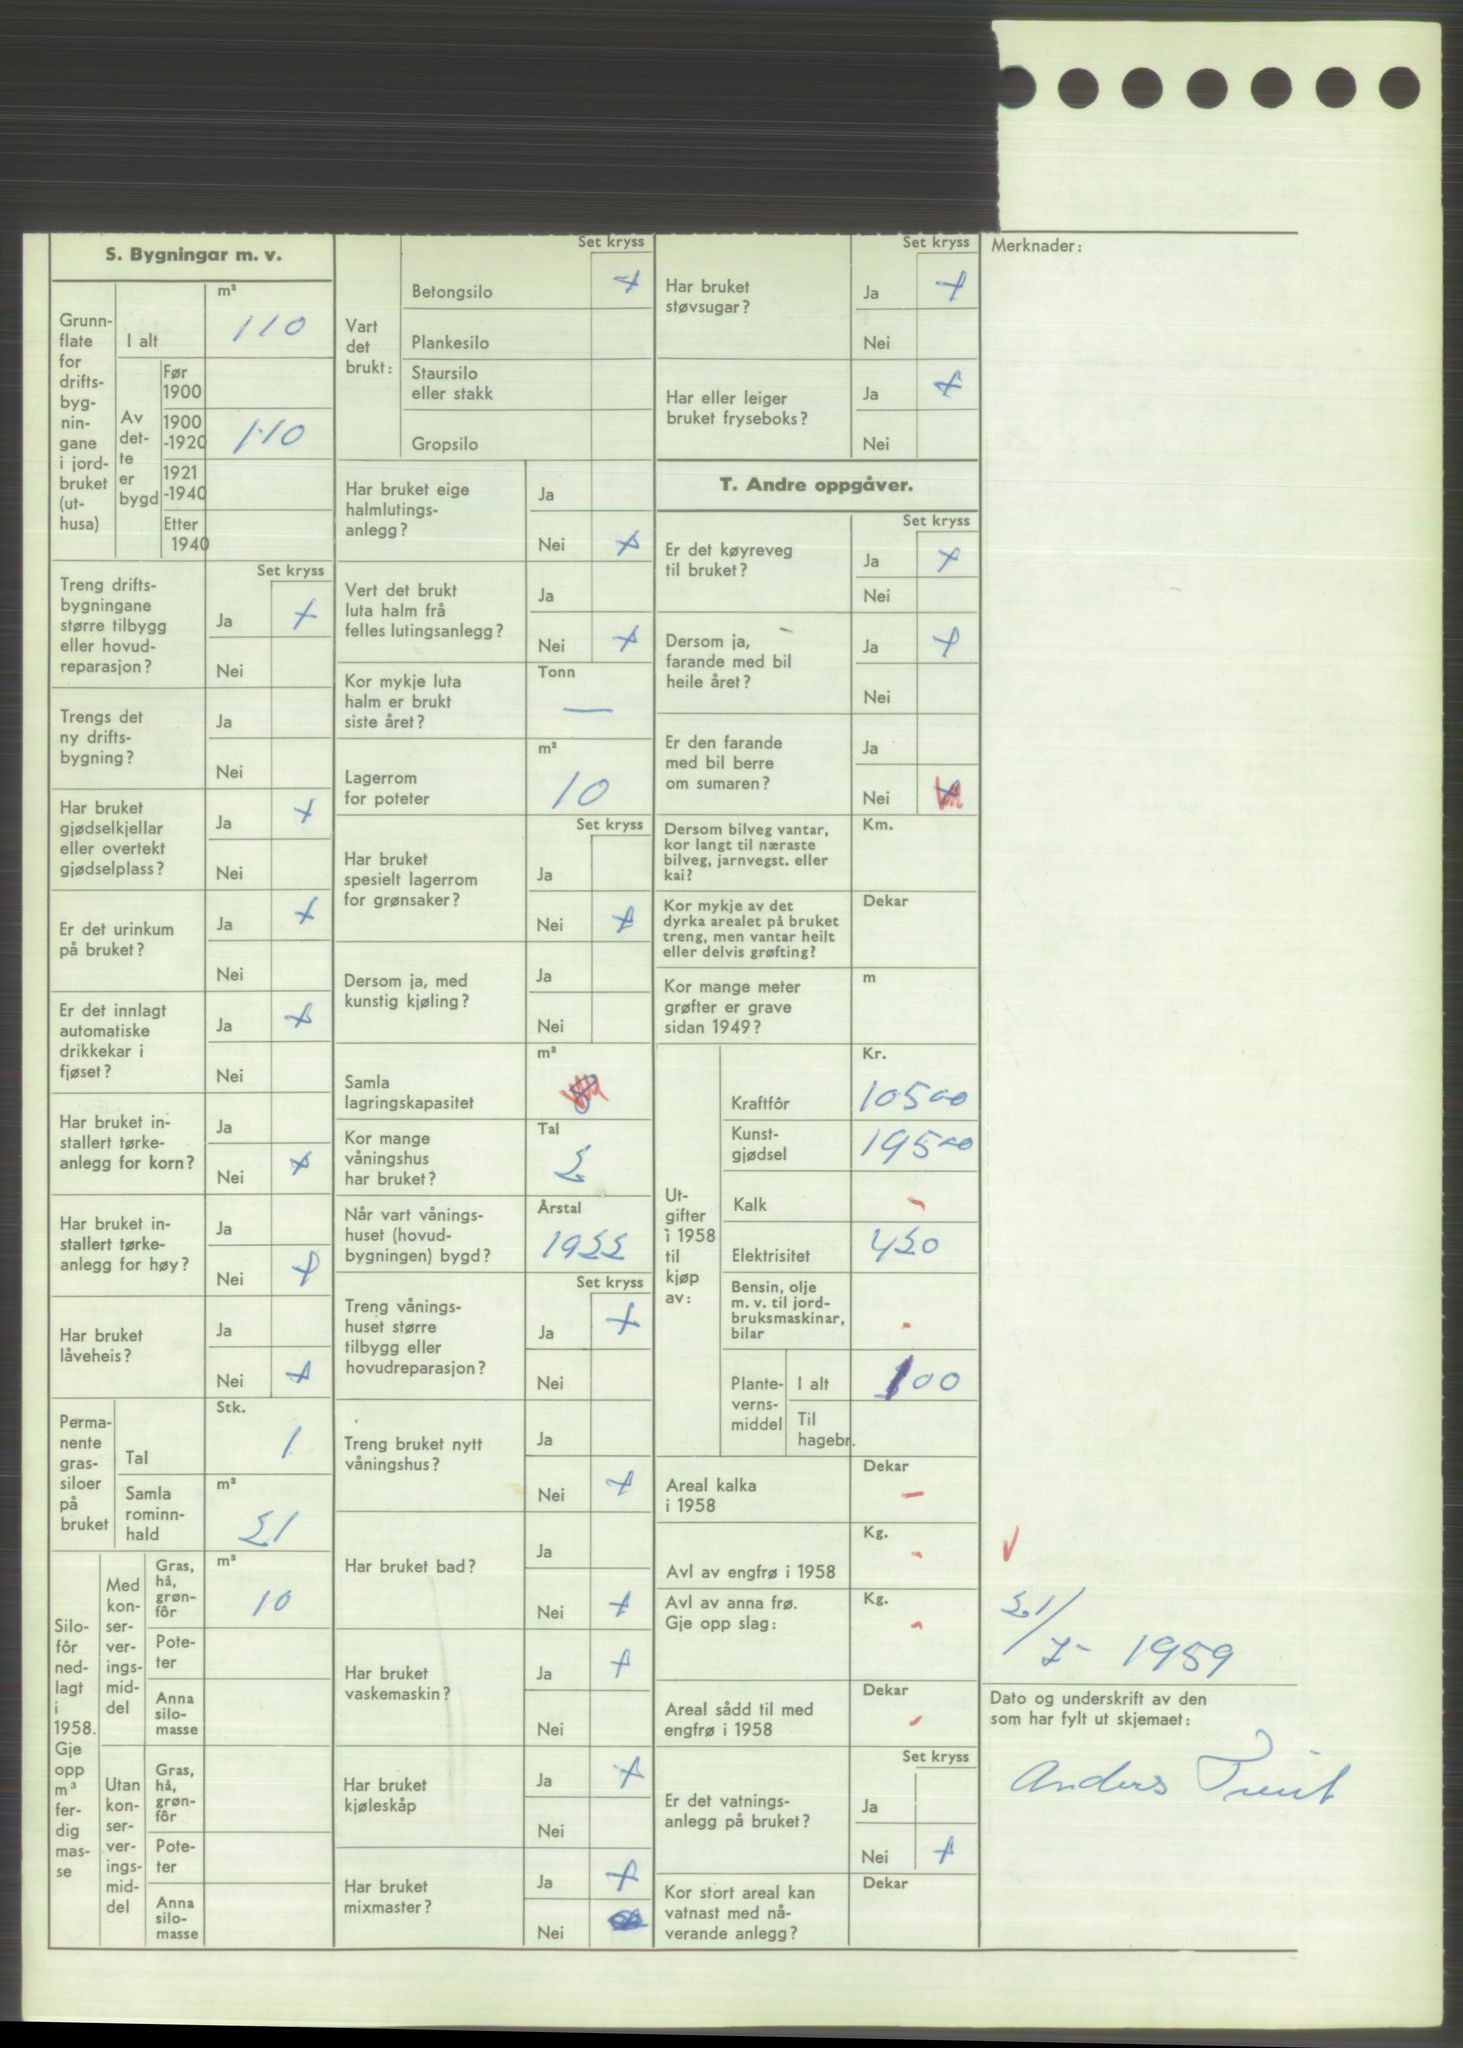 S. Bygningar m. v.
Grunn-
flate
for
drifts-
byg-
nin-
gane
i jord-
bruket
(ut-
husa)
I alt
m²
110
Av
det-
te
er
bygd
Før
1900
1900
-1920
110
1921
-1940
Etter
1940
Set kryss
Treng drifts-
bygningane
større tilbygg
eller hovud-
reparasjon?
Ja +
Nei
Trengs det
ny drifts-
bygning?
Ja
Nei
Har bruket
gjødselkjellar
eller overtekt
gjødselplass?
Ja +
Nei
Er det urinkum
på bruket?
Ja +
Nei
Er det innlagt
automatiske
drikkekar i
fjøset?
Ja +
Nei
Har bruket in-
stallert tørke-
anlegg for korn?
Ja
Nei +
Har bruket in-
stallert tørke-
anlegg for høy?
Ja
Nei +
Har bruket
låveheis?
Ja
Nei +
Perma-
nente
gras-
siloer
på
bruket
Tal
Stk.
1
Samla
rominn-
hald
m³
21
Silo-
fôr
ned-
lagt
i
1958.
Gje
opp
m³
fer-
dig
mas-
se
Med
kon-
ser-
ver-
ings-
mid-
del
Gras,
hå,
grøn-
fôr
m³
10
Pote-
ter
Anna
silo-
masse
Utan
kon-
ser-
ver-
ings-
mid-
del
Gras,
hå,
grøn-
fôr
Pote-
ter
Anna
silo-
masse
Set kryss
Vart
det
brukt:
Betongsilo +
Plankesilo
Staursilo
eller stakk
Gropsilo
Har bruket eige
halmlutings-
anlegg?
Ja
Nei +
Vert det brukt
luta halm frå
felles lutingsanlegg?
Ja
Nei +
Kor mykje luta
halm er brukt
siste året?
Tonn
—
Lagerrom
for poteter
m³
10
Set kryss
Har bruket
spesielt lagerrom
for grønsaker?
Ja
Nei +
Dersom ja, med
kunstig kjøling?
Ja
Nei
Samla
lagringskapasitet
m³
Kor mange
våningshus
har bruket?
Tal
2
Når vart vånings-
huset (hovud-
bygningen) bygd?
Årstal
1922
Set kryss
Treng vånings-
huset større
tilbygg eller
hovudreparasjon?
Ja +
Nei
Treng bruket nytt
våningshus?
Ja
Nei +
Har bruket bad?
Ja
Nei +
Har bruket
vaskemaskin?
Ja +
Nei
Har bruket
kjøleskåp
Ja +
Nei
Har bruket
mixmaster?
Ja +
Nei
Set kryss
Har bruket
støvsugar?
Ja +
Nei
Har eller leiger
bruket fryseboks?
Ja +
Nei
T. Andre oppgåver.
Set kryss
Er det køyreveg
til bruket?
Ja +
Nei
Dersom ja,
farande med bil
heile året?
Ja +
Nei
Er den farande
med bil berre
om sumaren?
Ja
Nei
Dersom bilveg vantar,
kor langt til næraste
bilveg, jarnvegst. eller
kai?
Km.
Kor mykje av det
dyrka arealet på bruket
treng, men vantar heilt
eller delvis grøfting?
Dekar
Kor mange meter
grøfter er grave
sidan 1949?
m
Ut-
gifter
i 1958
til
kjøp
av:
Kr.
Kraftfôr
10500
Kunst-
gjødsel
19500
Kalk -
Elektrisitet 420
Bensin, olje
m. v. til jord-
bruksmaskinar,
bilar -
Plante-
verns-
middel
I alt 100
Til
hagebr.
Areal kalka
i 1958
Dekar
-
Avl av engfrø i 1958
Kg.
-
Avl av anna frø.
Gje opp slag:
Kg.
-
Areal sådd til med
engfrø i 1958
Dekar
-
Set kryss
Er det vatnings-
anlegg på bruket?
Ja
Nei +
Kor stort areal kan
vatnast med nå-
verande anlegg?
Dekar
Merknader:
21/7- 1959
Dato og underskrift av den
som har fylt ut skjemaet:
Anders